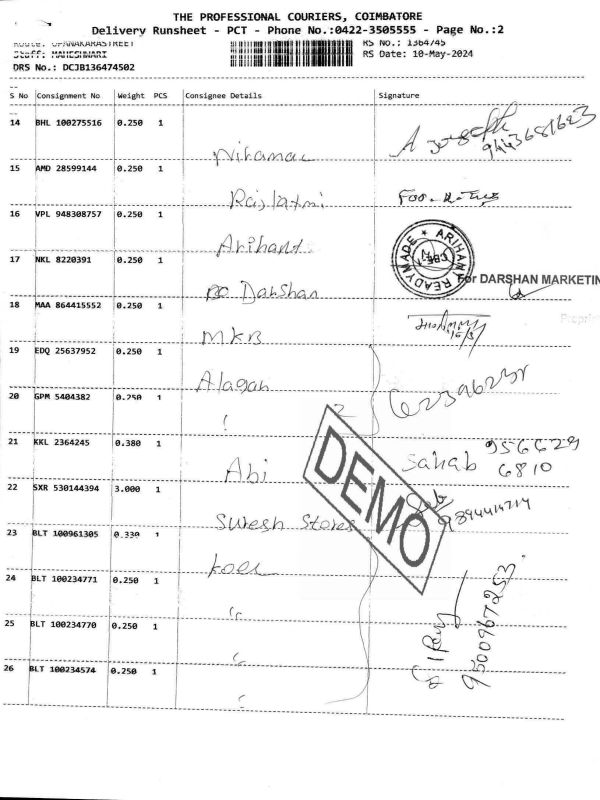 THE PROFESSIONAL COURIERS, COIMBATORE
Delivery Runsheet - PCT - Phone No.:0422-3505555 - Page No.:2
Route: OPANAKARASTREET RS No.: 1364745
Staff: MAHESHWARI RS Date: 10-May-2024
DRS No.: DCJB136474502
S No Consignment No Weight PCS Consignee Details Signature
14 BHL 100275516 0.250 1 Niramac 9443681623
15 AMD 28599144 0.250 1 Rajlaxmi
16 VPL 948308757 0.250 1 Arihant
ARIHANT READYMADE ★ CBE-1
17 NKL 8220391 0.250 1 Darshan For DARSHAN MARKETIN
18 MAA 864415552 0.250 1 MKB
19 EDQ 25637952 0.250 1 Alagan
20 GPM 5404382 0.250 1 "
21 KKL 2364245 0.380 1 Abi Sahab 956629 6810
22 SXR 530144394 3.000 1 Suresh Stores
DEMO
23 BLT 100961305 0.330 1
24 BLT 100234771 0.250 1 "
25 BLT 100234770 0.250 1 " 9500967253
26 BLT 100234574 0.250 1 "